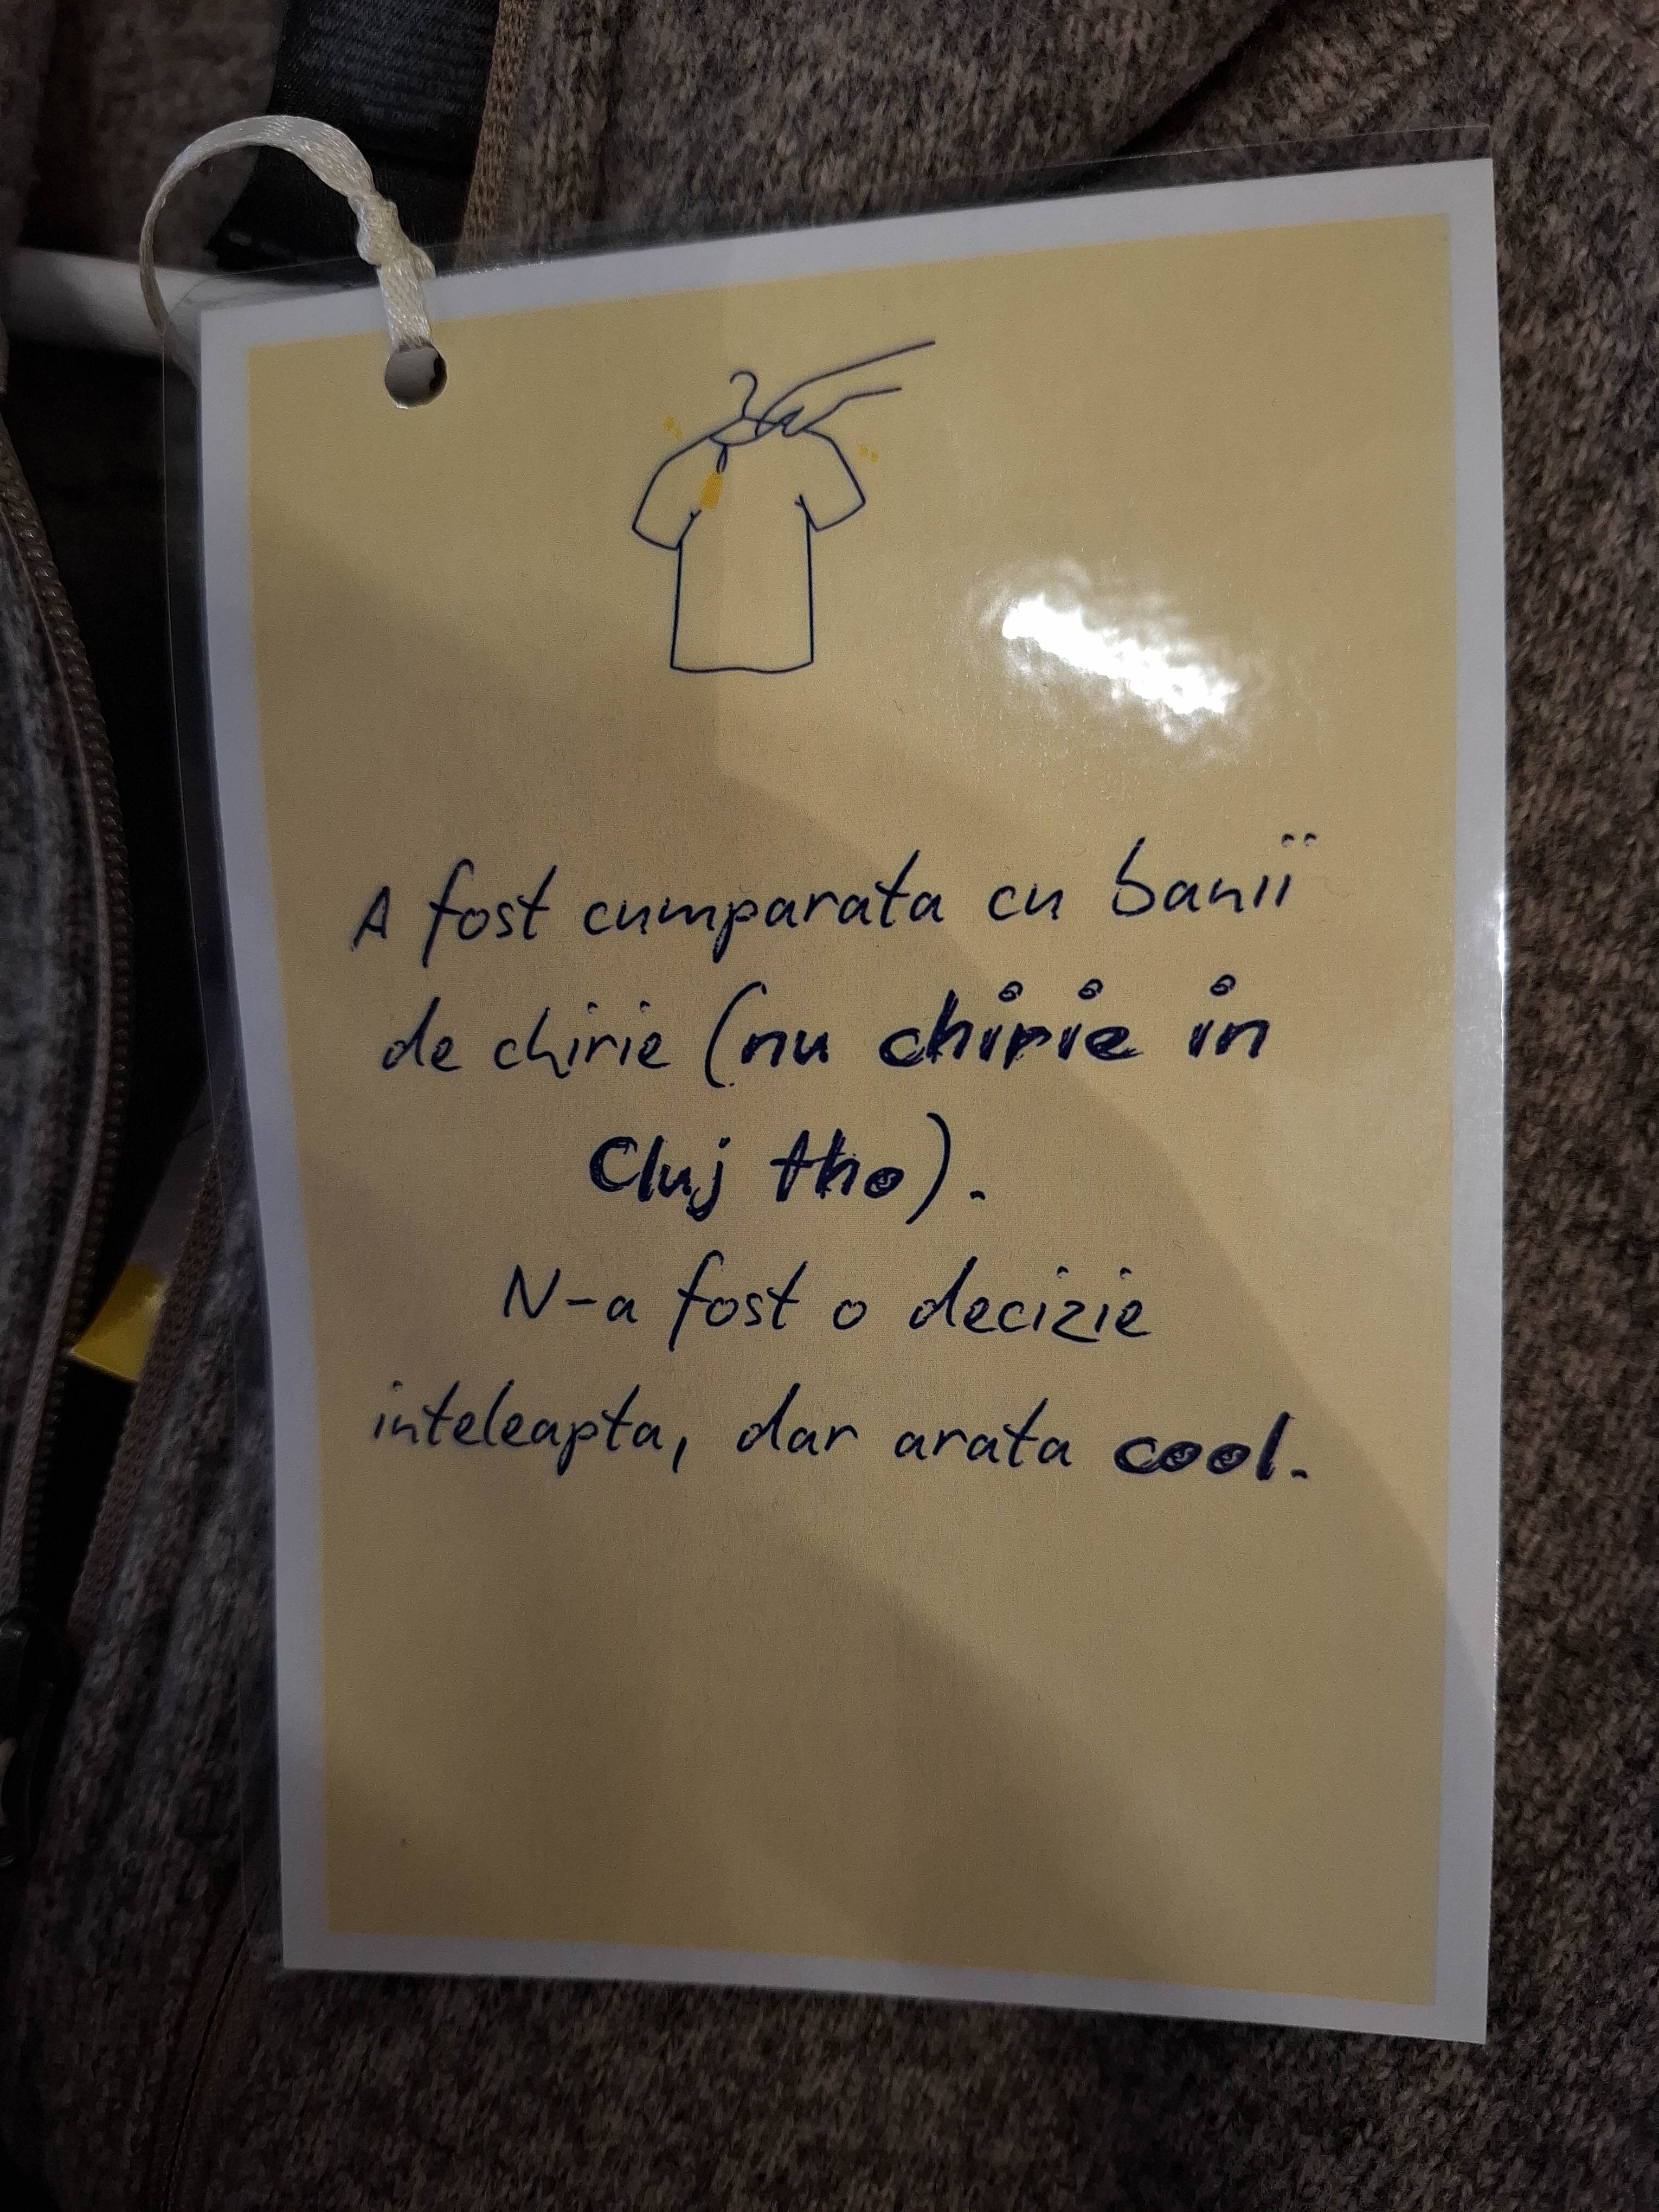 A fost cumparata cu banii
de chirie (nu chirie in
Cluj tho).
N-a fost o decizie
inteleapta, dar arata cool.